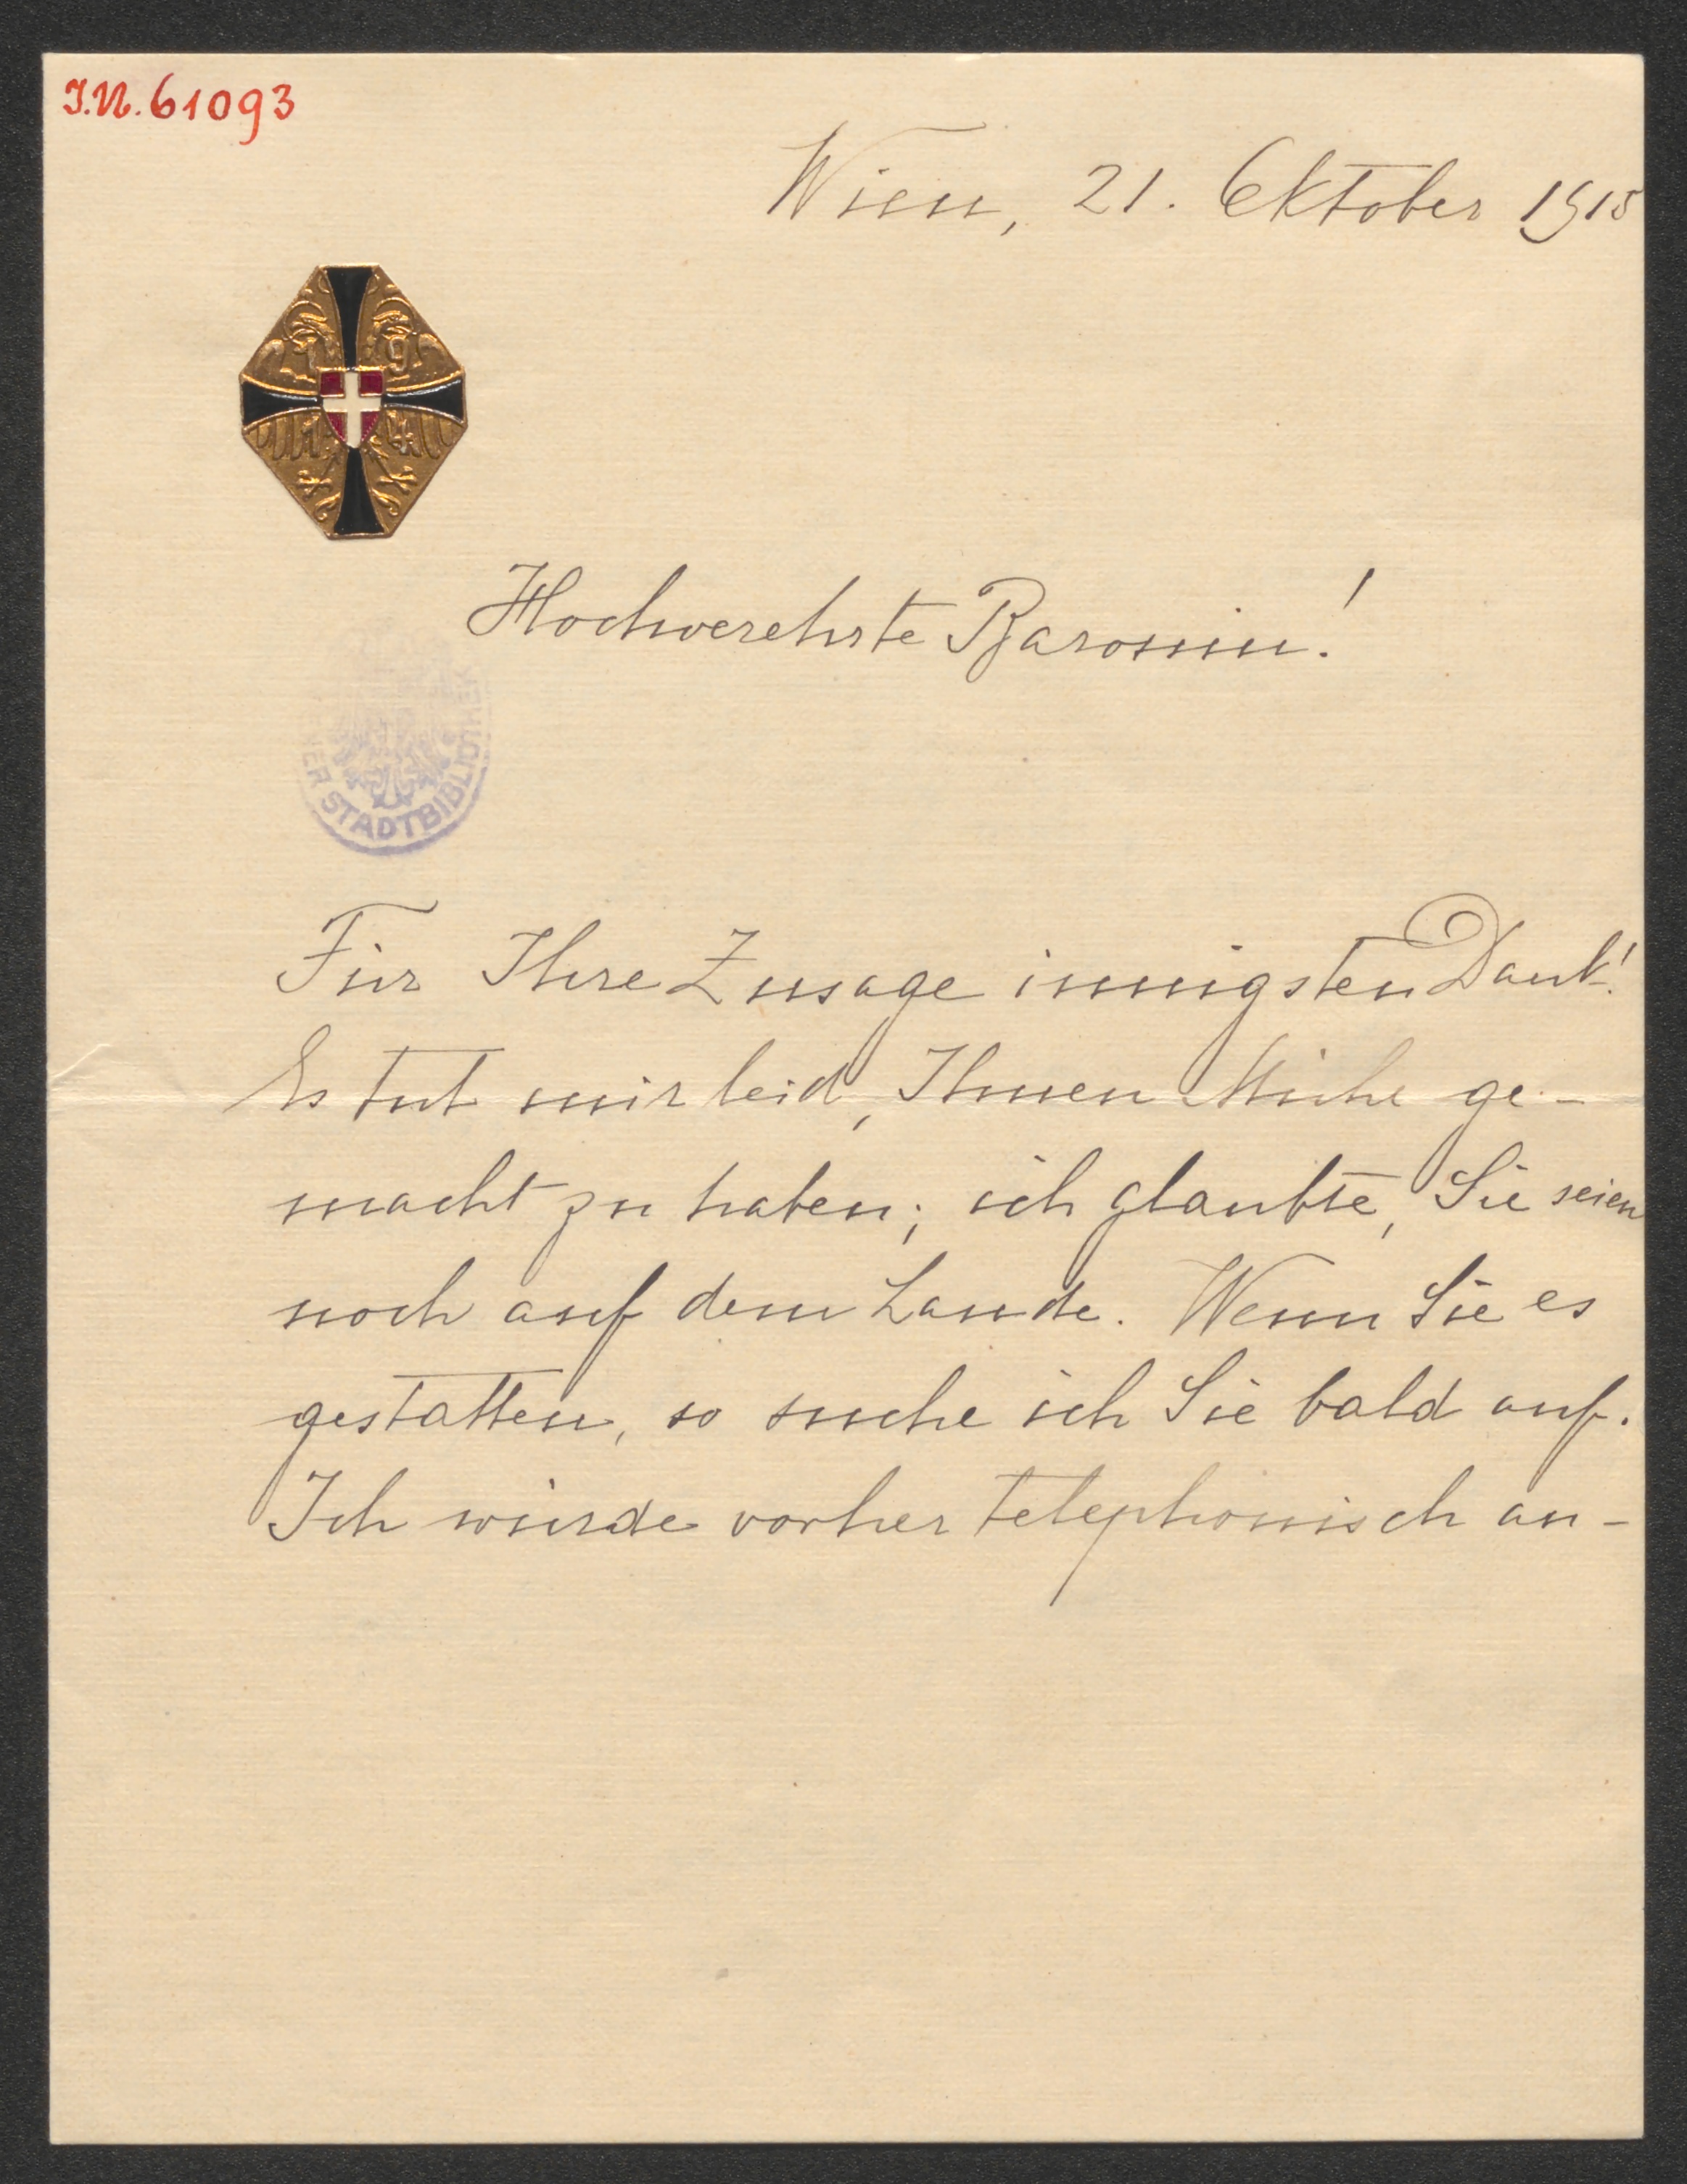 J.N. 61093
Wien, 21. Oktober 1915
19
14
Hochverehrte Baronin!
STADTBIBLIOTHEK
Für Ihre Zusage innigsten Dank!
Es tut mir leid, Ihnen Mühe ge-
macht zu haben; ich glaubte, Sie seien
noch auf dem Lande. Wenn Sie es
gestatten, so suche ich Sie bald auf.
Ich würde vorher telephonisch an-